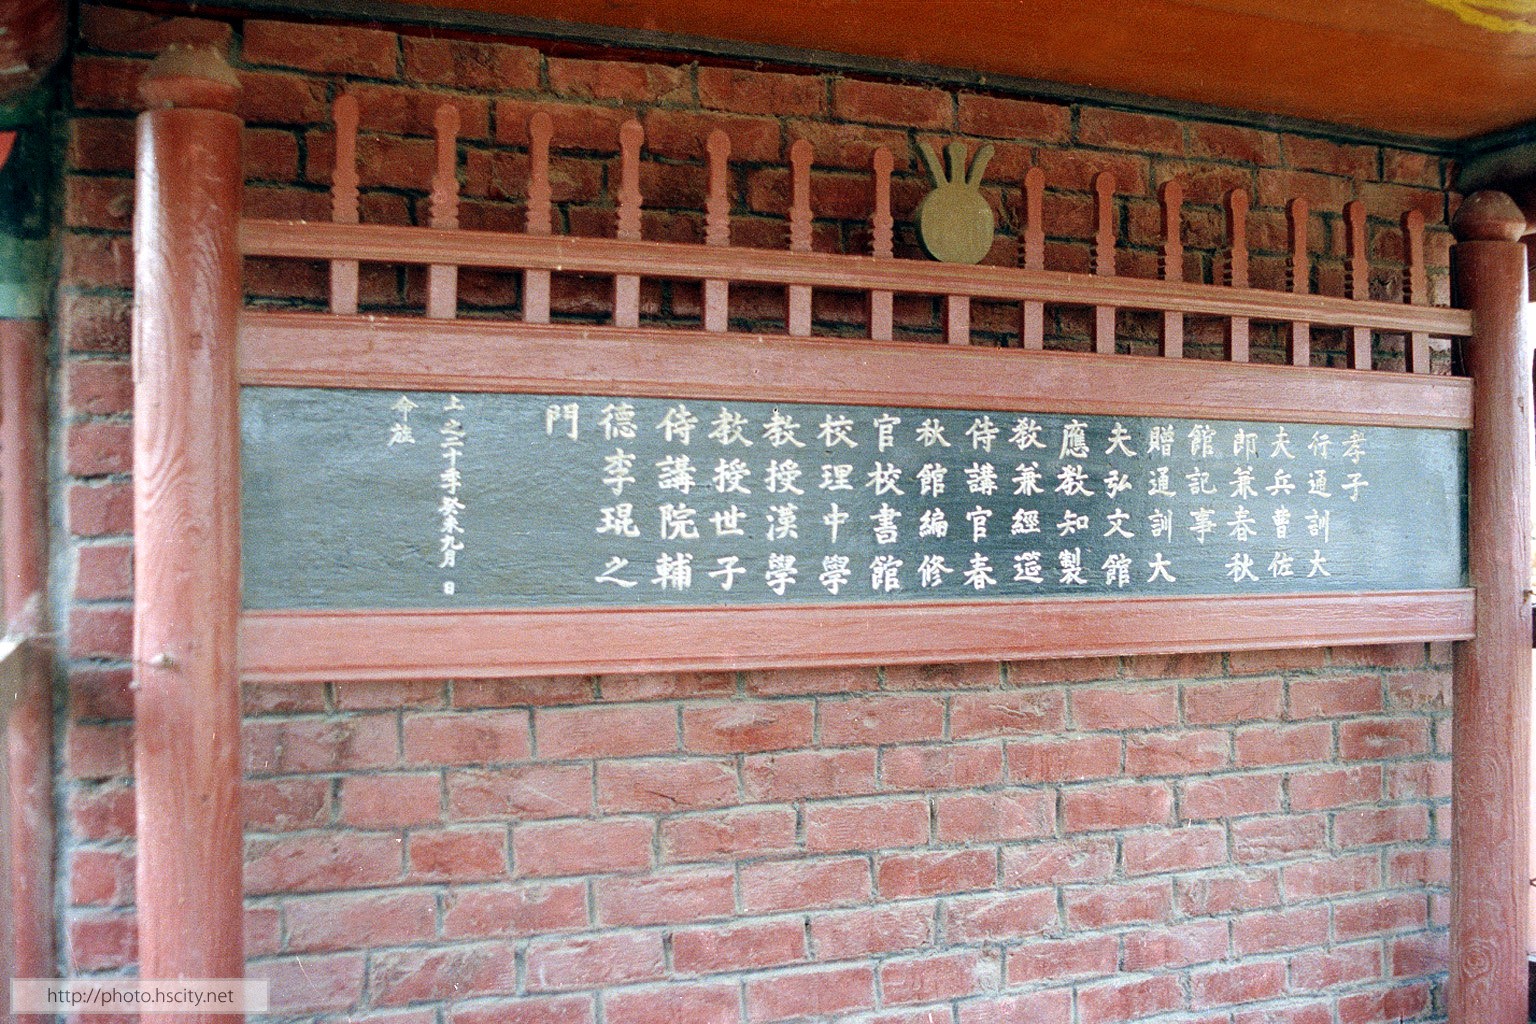 孝子
行通訓大
夫兵曹佐
郎兼春秋
館記事
贈通訓大
夫弘文館
應教知製
教兼經筵
侍講官春
秋館編修
官校書館
校理中學
教授漢學
教授世子
侍講院輔
德李琨之
門
上之二十季癸未九月 日
命旌
http://photo.hscity.net